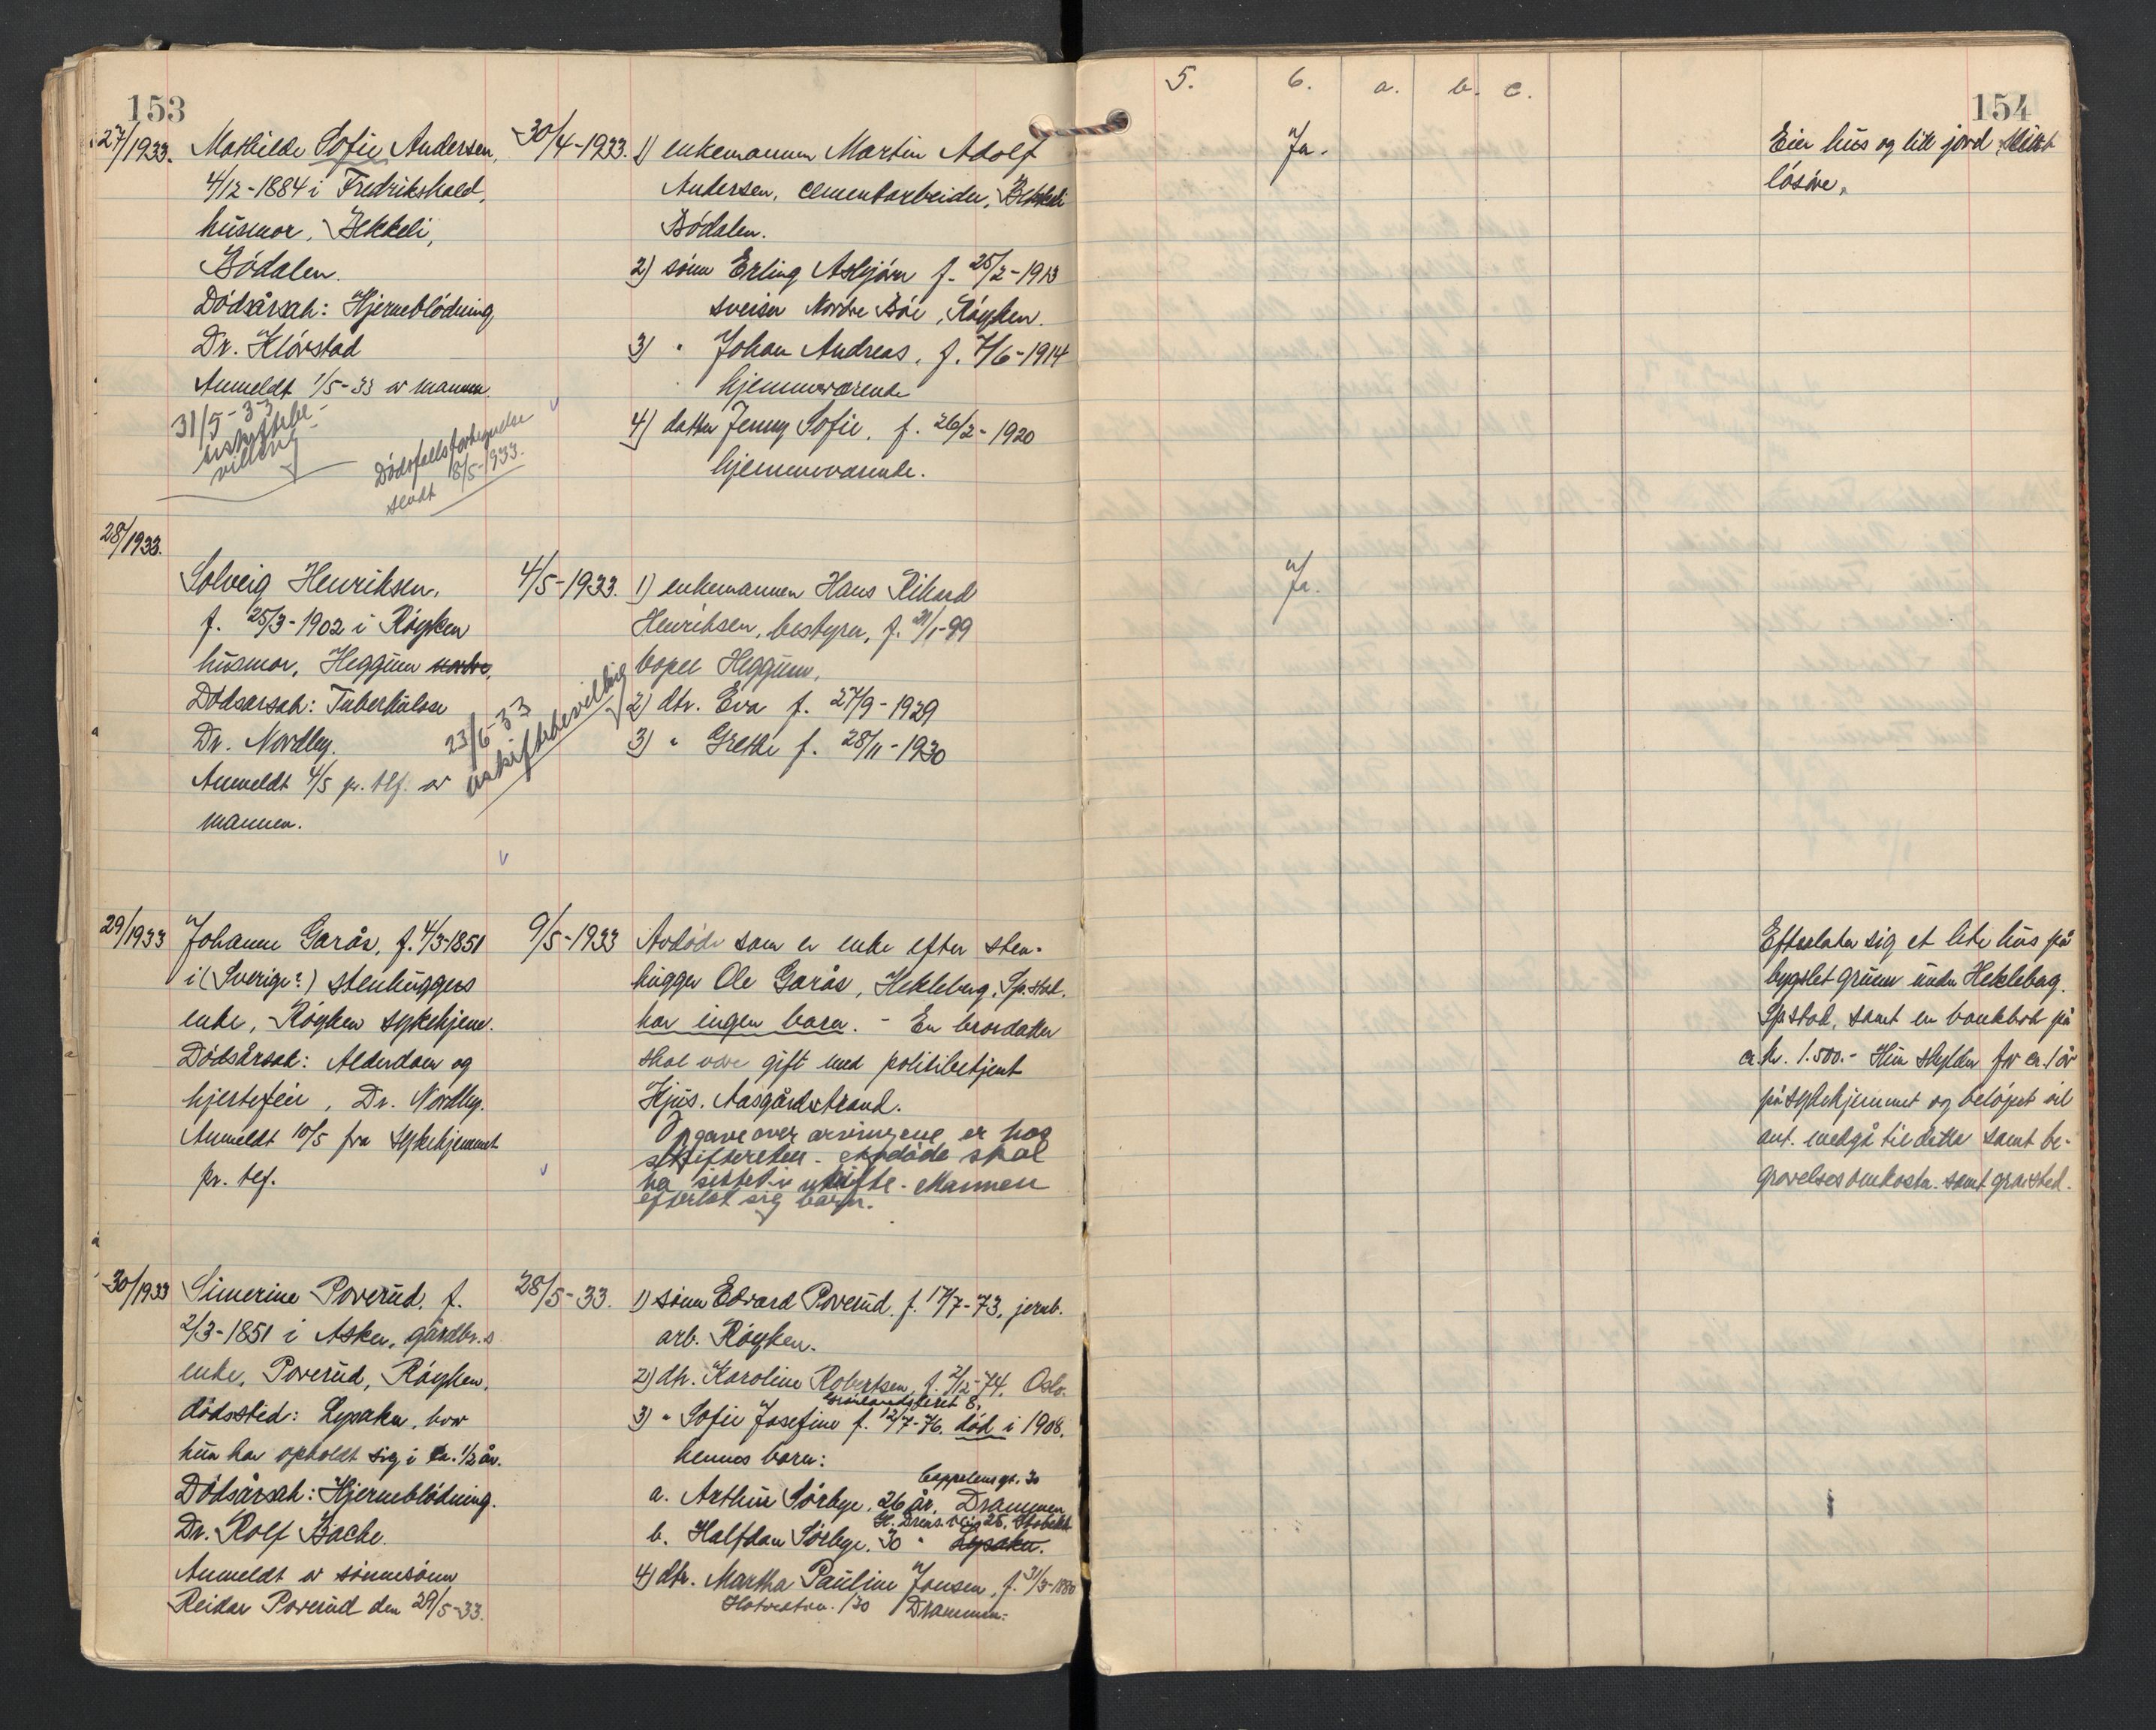 153
27/1933. Mathilde Sofie Andersen,
4/12-1884 i Fredrikshald,
husmor, Bekkeli,
Bödalen.
Dödsårsak: Hjerneblödning
Dr. Klövstad
Anmeldt 1/5-33 av mannen.
31/5-33
uskiftebe-
villing
Dödsfallsforhegnelse
sendt 18/5-1933.
30/4-1933.
1) enkemannen Martin Adolf
Andersen, cementarbeider, Bekkeli
Bödalen.
2) sönn Erling Asbjörn f. 25/2-1913
sveiser Nordre Böe, Röyken.
3) " Johan Andreas, f. 7/6-1914
hjemmeværende
4) datter Jenny Sofie, f. 26/2-1920
hjemmeværende.
28/1933.
Solveig Henriksen,
f. 25/3-1902 i Röyken
husmor, Heggum nordre,
Dödsårsak: Tuberkulose
Dr. Nordby.
Anmeldt 4/5 pr. tlf. av
mannen.
23/6-33
uskiftebevilling
4/5-1933.
1) enkemannen Hans Rikard
Henriksen, bestyrer, f. 31/1-99
bopel Heggum,
2) dtr. Eva f. 27/9-1929
3) " Grethe f. 28/11-1930
29/1933 Johanne Garås, f. 4/3-1851
i (Sverige?) stenhuggers
enke, Röyken sykehjem.
Dödsårsak: Alderdom og
hjertefeil, Dr. Nordby.
Anmeldt 10/5 fra sykehjemmet
pr. tlf.
9/5-1933
Avdöde som er enke efter sten-
hugger Ole Garås, Hekleberg, Spstad.
har ingen barn. - En brordatter
skal være gift med politibetjent
Hjus, Aasgårdstrand.
Opgave over arvingene er hos
skifteretten - Avdöde skal
ha sittet i uskifte. Mannen
efterlot sig barn.
30/1933 Simerine Poverud, f.
2/3-1851 i Asker, gårdbr.s
enke, Poverud, Röyken,
dödssted: Lysaker, hvor
hun har opholdt sig i ca. 1/2 år.
Dödsårsak: Hjerneblödning.
Dr. Rolf Bache.
Anmeldt av sönnesönn
Reidar Poverud den 29/5-33.
28/5-33.
1) sönn Edvard Poverud, f. 17/7-73, jernb.
arb. Röyken.
2) dtr. Karoline Robertsen, f. 2/12-74. Oslo.
Grönlandsleret 8.
3) " Sofie Josefine f. 12/7-76, död i 1908.
hennes barn:
Cappelens gt. 30
a. Arthur Sörbye, 26 år, Drammen
25, Stabekk
b. Halfdan Sörbye, 30 " Lysaker.
4) dtr. Martha Pauline Jonsen, f. 31/3-1880
130 Drammen.
154
5. 6. a. b. c.
Ja.
Eier hus og litt jord, samt
lösöre.
Ja.
Efterlater sig et lite hus på
bygslet grunn under Hekleberg.
Spstad, samt en bankbok på
ca. kr. 1.500.- Hun skylder for ca. 1 år
på sykehjemmet og belöpet vil
ant. medgå til dette samt be-
gravelsesomkostn. samt gravsted.